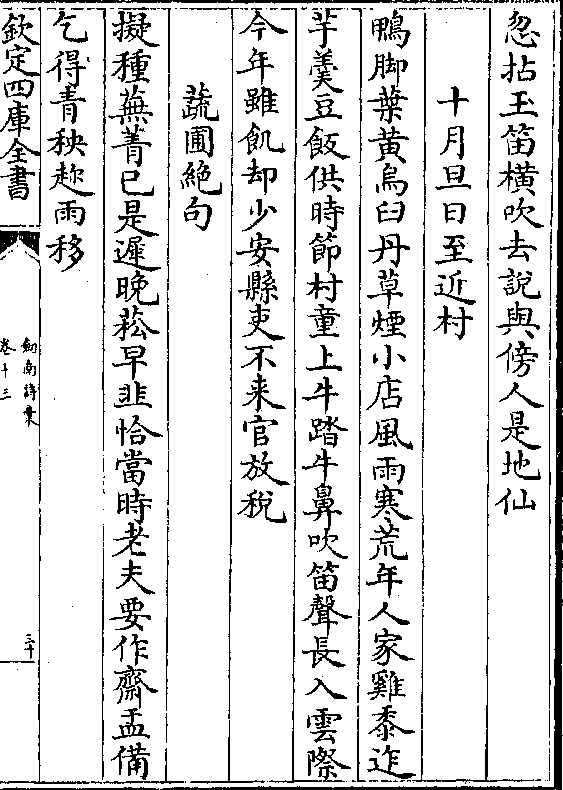 忽拈玉笛橫吹去說與傍人是地仙
十月旦日至近村
鴨脚葉黃烏臼丹草煙小店風雨寒荒年人家雞黍迮
芋羹豆飯供時節村童上牛踏牛鼻吹笛聲長入雲際
今年雖飢却少安縣吏不来官放稅
蔬圃絕句
擬種蕪菁已是遲晚菘早韭恰當時老夫要作齋盂備
乞得青秧趂雨移
欽定四庫全書
劎南詩稾
卷十三
三十